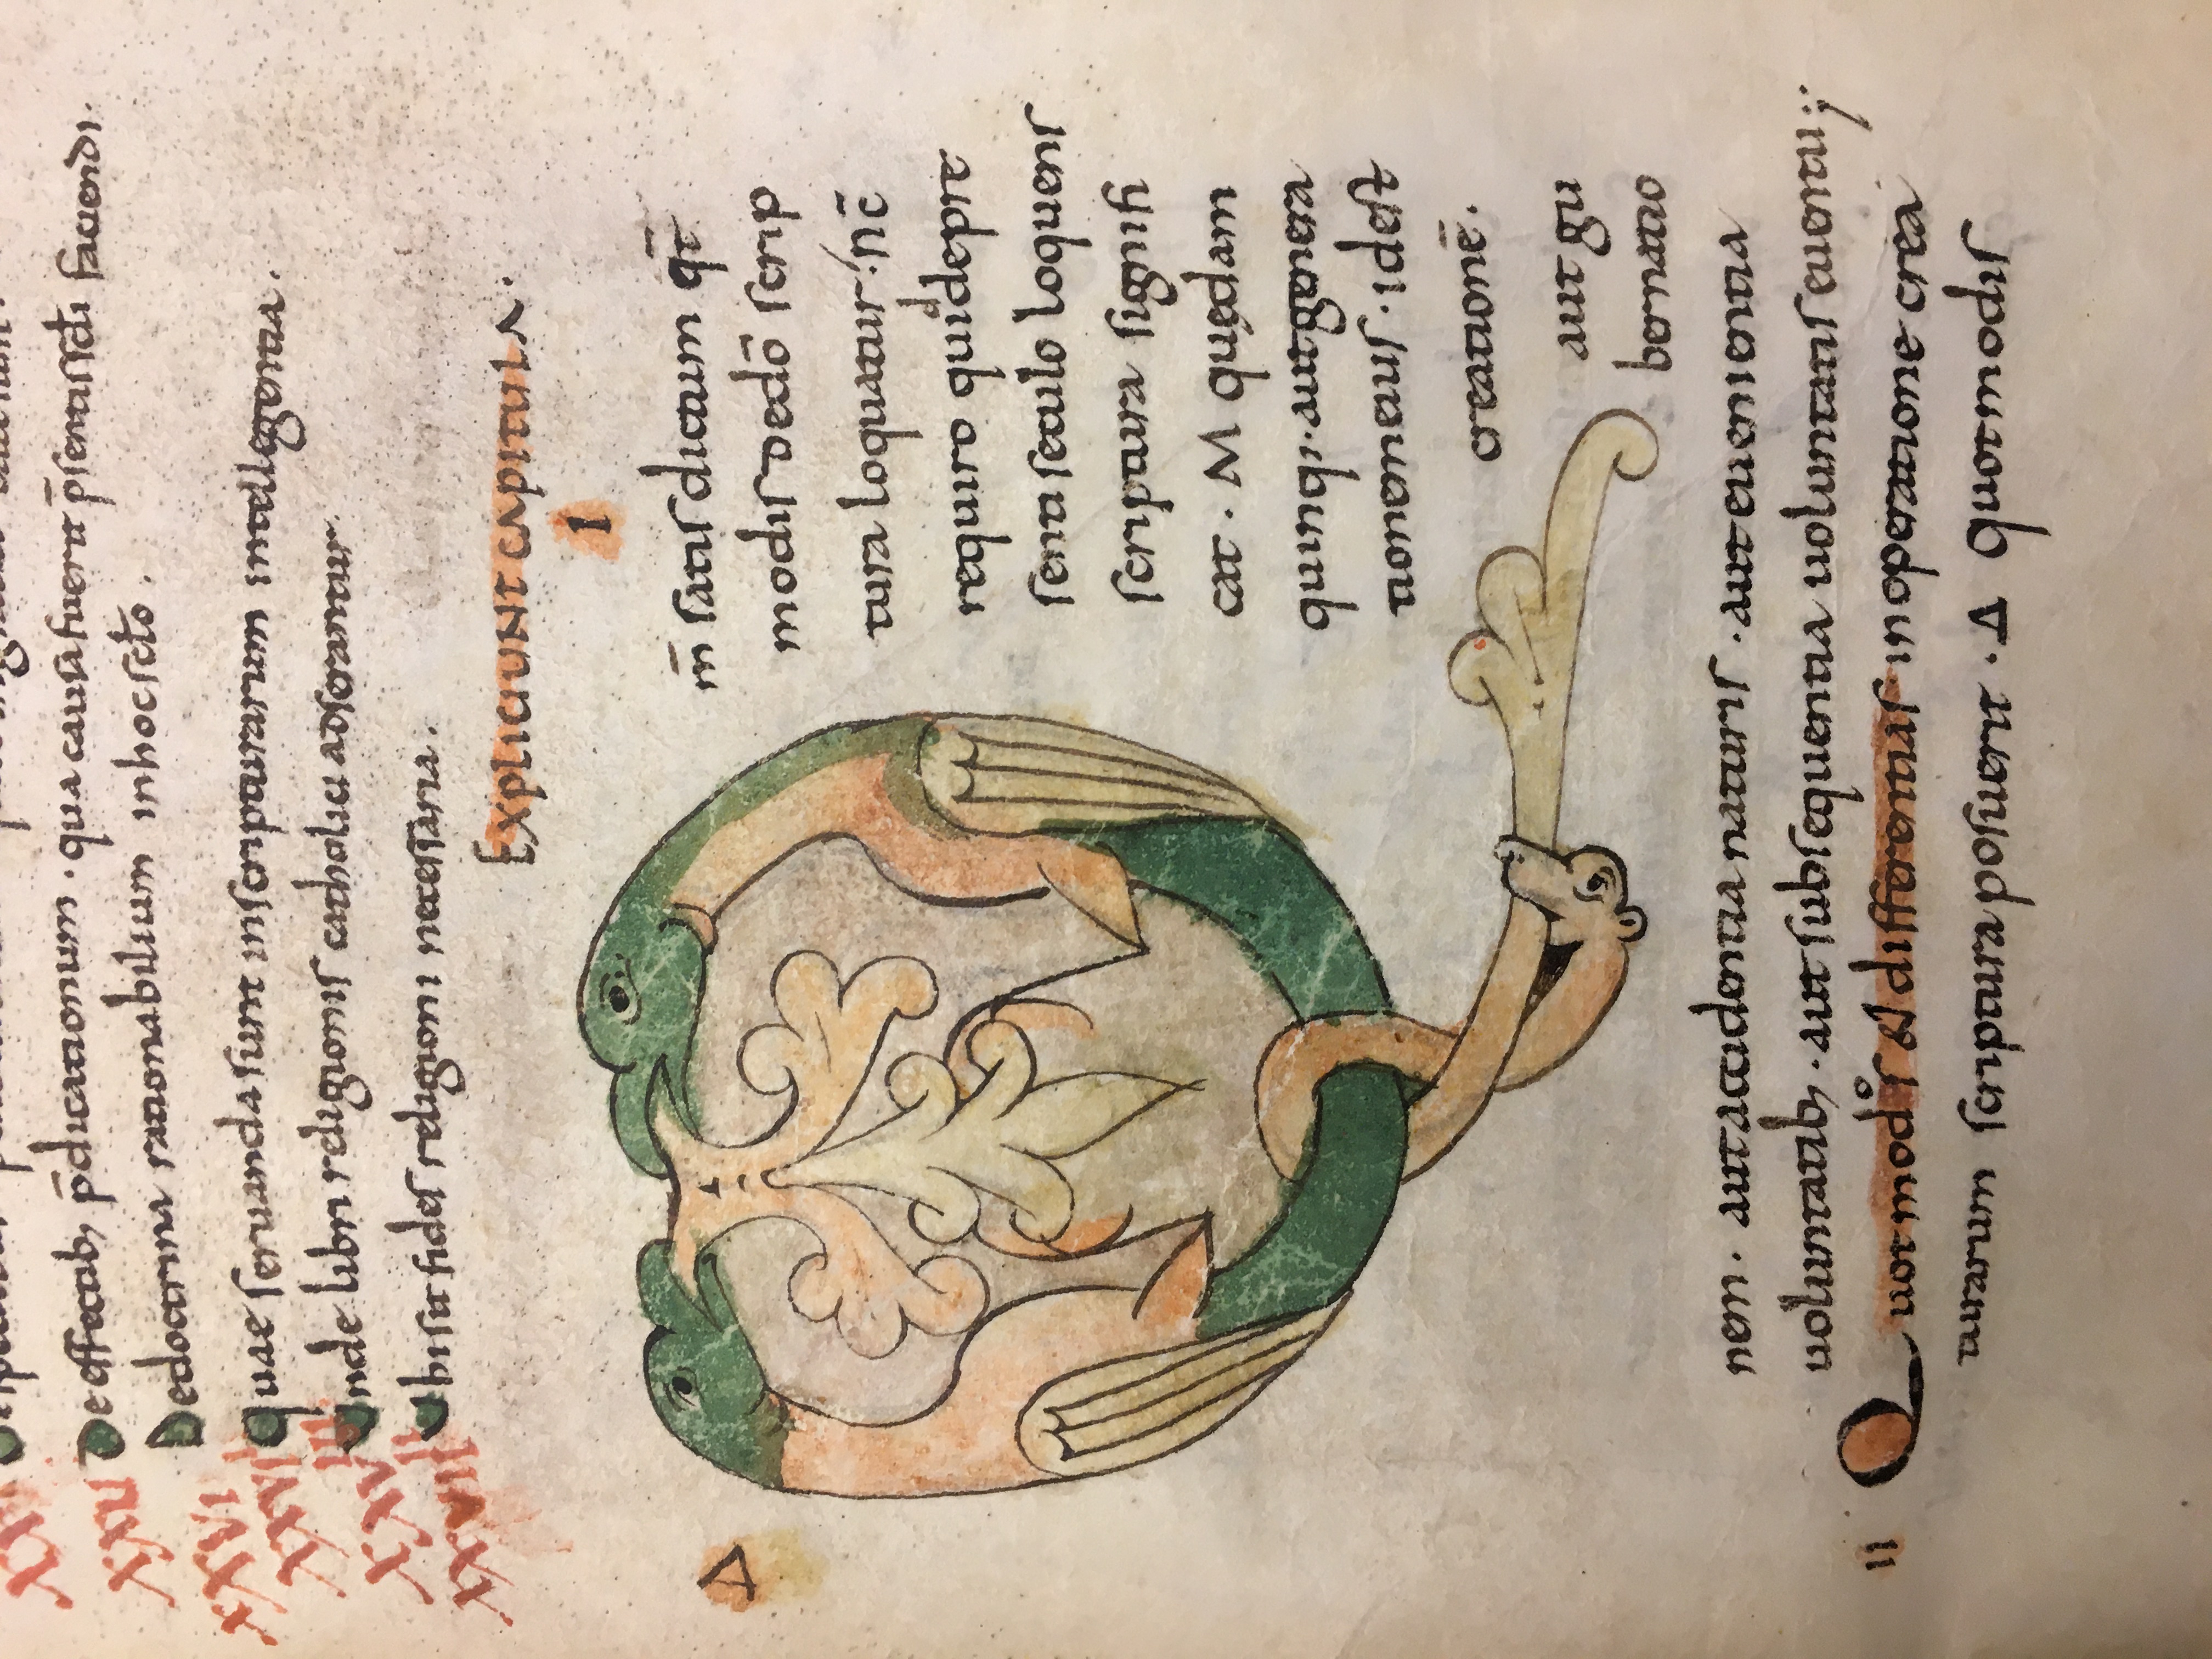 XXV De effectib; p̄dicationum · qua causa fuerit p̄sentis sc̄li faciendi.
XXVI De doctrina rationabilium in hoc sc̄lo.
XXVII quae servanda sunt in scripturarum intellegentia.
XXVIII unde libri religionis catholici adserantur
XXVIIII ubi sit fides religioni necessaria.
EXPLICIUNT CAPITULA.
I
Δ Qm̄ satis dictum q̄t
modis de dō scrip
tura loquatur· nc̄
requiro quid de pre
senti seculo loquens
scriptura signifi
cat. M quędam
quinq;· aut genera
tionem eius · id est
creationē·
aut gu
bernatio
nem · aut accidentia naturis · aut euenientia
uoluntatib; · aut subsequentia uoluntatis euentu;
II Quot modis et differentias in operatione crea
turarum scriptura posuerit · Δ Quot modis